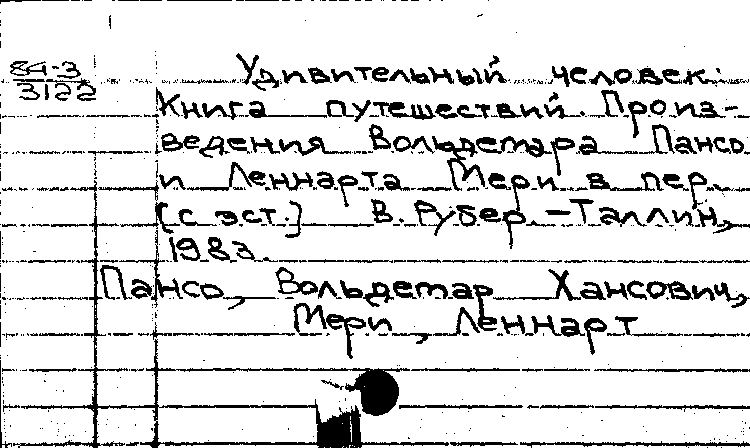 84-3
3122
Удивительный человек:
Книга путешествий. Произ-
ведения Вольдемара Пансо
и Леннарта Мери в пер.
[с эст.] В. Рубер. - Таллин,
1983.
Пансо, Вольдемар Хансович,
Мери, Леннарт